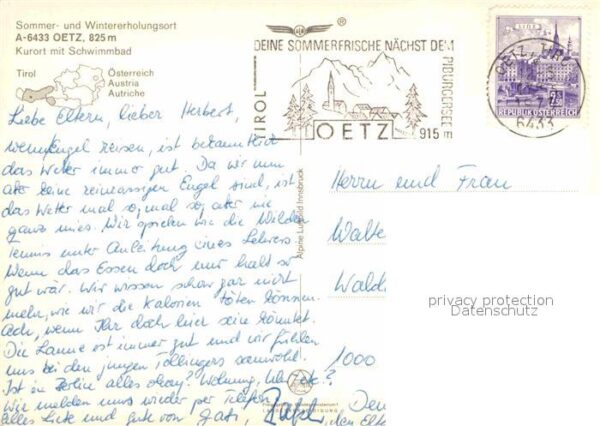 Sommer- und Wintererholungsort
A-6433 OETZ, 825 m
Kurort mit Schwimmbad
Tirol
Österreich
Austria
Autriche
®
DEINE SOMMERFRISCHE NÄCHST DEM
PIBURGERSEE
915 m
TIROL
OETZ
LINZ
OETZ, TIROL
6433
REPUBLIK ÖSTERREICH
Liebe Eltern, lieber Herbert,
wenn Engel reisen, ist bekanntlich
das Wetter immer gut. Da wir nun
aber keine reinrassigen Engel sind, ist
das Wetter mal so, mal so, aber nie
ganz mies. Wir spielen wie die Wilden
Tennis unter Anleitung eines Lehrers.
Wenn das Essen doch nur halb so
gut wär. Wir wissen schon gar nicht
mehr, wie wir die Kalorien töten können.
Ach, wenn Ihr doch hier sein könntet.
Die Laune ist immer gut und wir fühlen
uns bei den jungen Tollingers sauwohl.
Ist in Berlin alles okay? Wohnung, etc.?
Wir melden uns wieder per Telefon
Alles Liebe und gute von
Alpine Luftbild Innsbruck
Herrn und Frau
Walte
Wald
1000
den Elte
privacy protection
Datenschutz